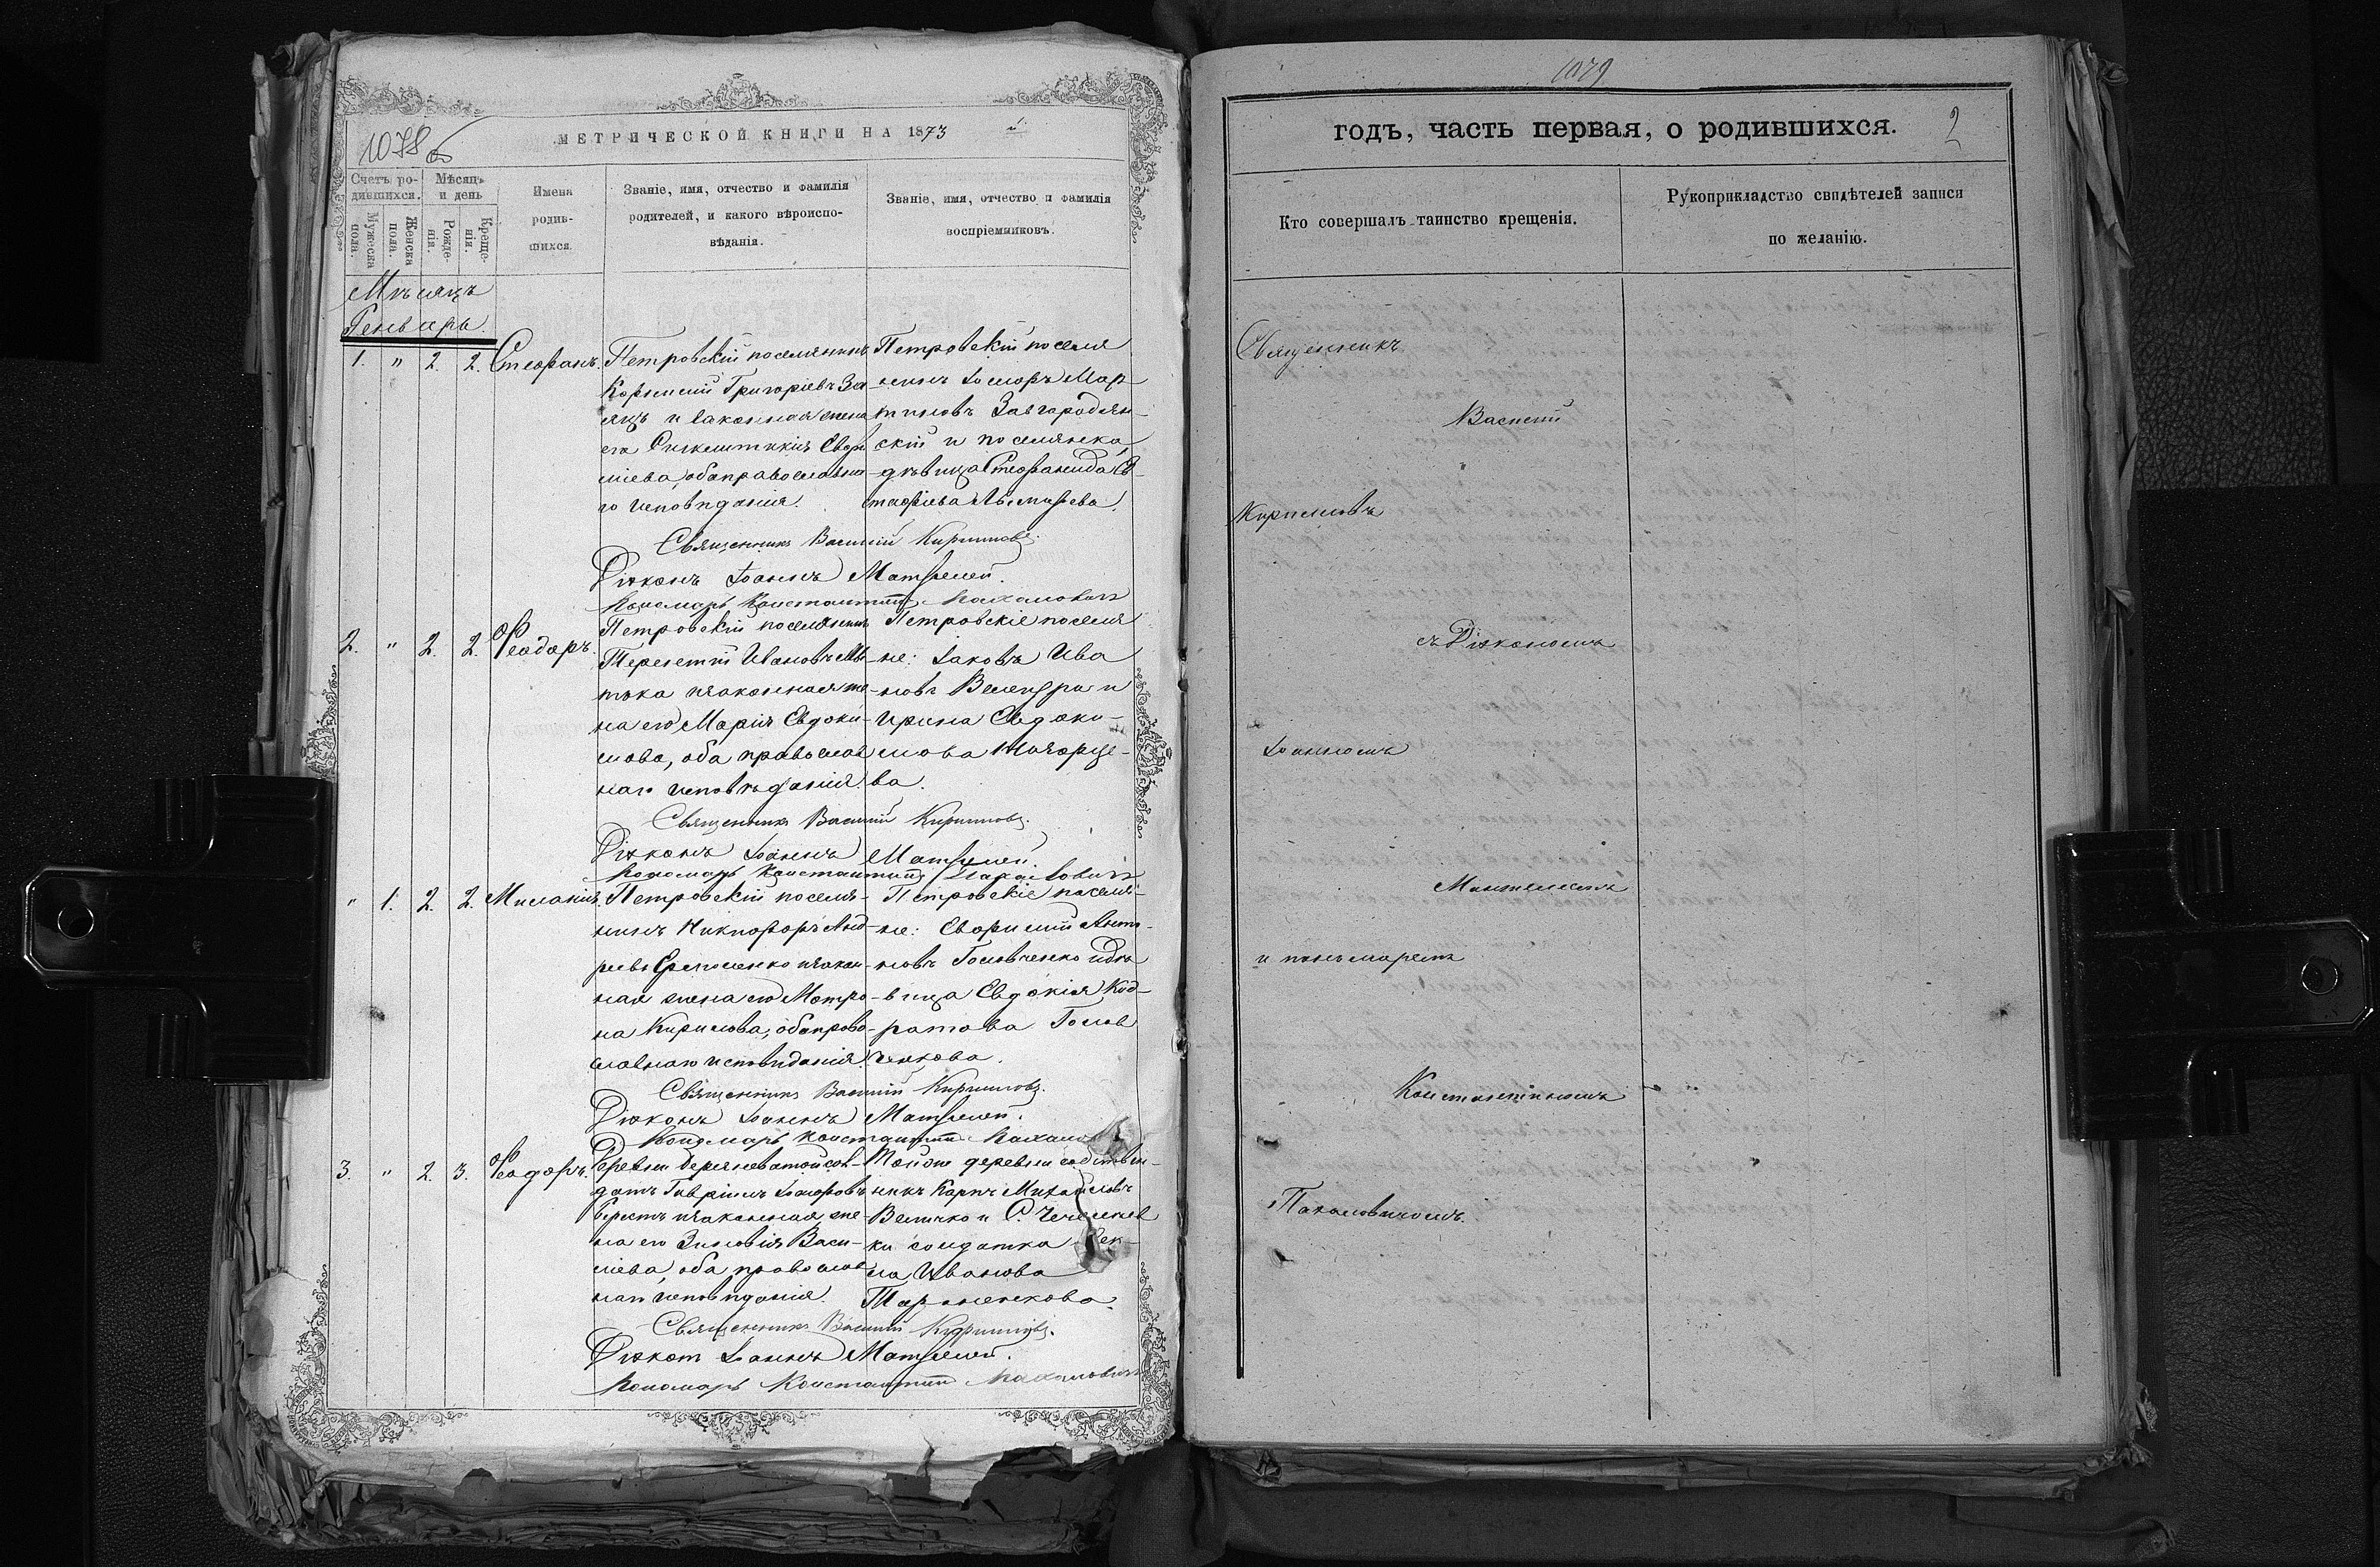 1078 об
МЕТРИЧЕСКОЙ КНИГИ НА 1873
Счетъ ро-
дившихся.
Мѣсяцъ
и день
Мужеска
пола.
Женска
пола.
Рожде-
нія.
Креще-
нія.
Имена
родив-
шихся.
Званіе, имя, отчество и фамилія
родителей, и какого вѣроиспо-
вѣданія.
Званіе, имя, отчество и фамилія
воспріемниковъ.
Мѣсяцъ
Генварь.
1. " 2. 2. Стефанъ.
Петровскій поселянинъ
Корнилій Григоріевъ За-
яцъ и законная жена
его Синклитикія
обаправославна-
го исповѣданія.
Петровскій поселя
нинъ Іосифъ Мар-
тиновъ Завгороднян-
скій и поселянка
дѣвица Стефанида
Священникъ Василій Кирилловъ.
Діяконъ Іоаннъ
Пономарь Константинъ
2. " 2. 2. Феодоръ.
Петровскій поселянинъ
Терентій Ивановъ
и законная же-
на его Марія Евдоки-
мова, оба православ
наго исповѣданія.
Петровскіе поселя
не: Іаковъ Ива
новъ и
Ирина Евдоки-
мова
ва.
Священникъ Василій Кирилловъ.
Діяконъ Іоаннъ
Пономарь Константинъ
" 1. 2. 2. Меланія.
Петровскій поселя-
нинъ Никифоръ Анд-
реевъ и закон-
ная жена его Матро-
на Кирилова, обаправо-
славнаго исповѣданія.
Петровскіе поселя-
не: Евфимій Анто-
новъ Головченко и дѣ-
вица Евдокія Код-
ратова Голов
ченкова.
Священникъ Василій Кирилловъ.
Діяконъ Іоаннъ
Пономарь Константинъ
3. " 2. 3. Феодоръ.
Деревни сол-
датъ Гавріилъ Іосифовъ
Берестъ и законная же-
на его Зиновія Васи-
ліева, оба православ
наго исповѣданія.
Той же деревни собствен-
никъ Карпъ Михайловъ
Величко и
ки солдатка Фек-
ла Иванова
Тараненкова.
Священникъ Василій Кирилловъ.
Діяконъ Іоаннъ
Пономарь Константинъ
1079
годъ, часть первая, о родившихся.
2
Кто совершалъ таинство крещенія.
Рукоприкладство свидѣтелей записи
по желанію.
Священникъ
Василій
Кирилловъ
съ Діякономъ
Іоанномъ
и пономаремъ
Константиномъ